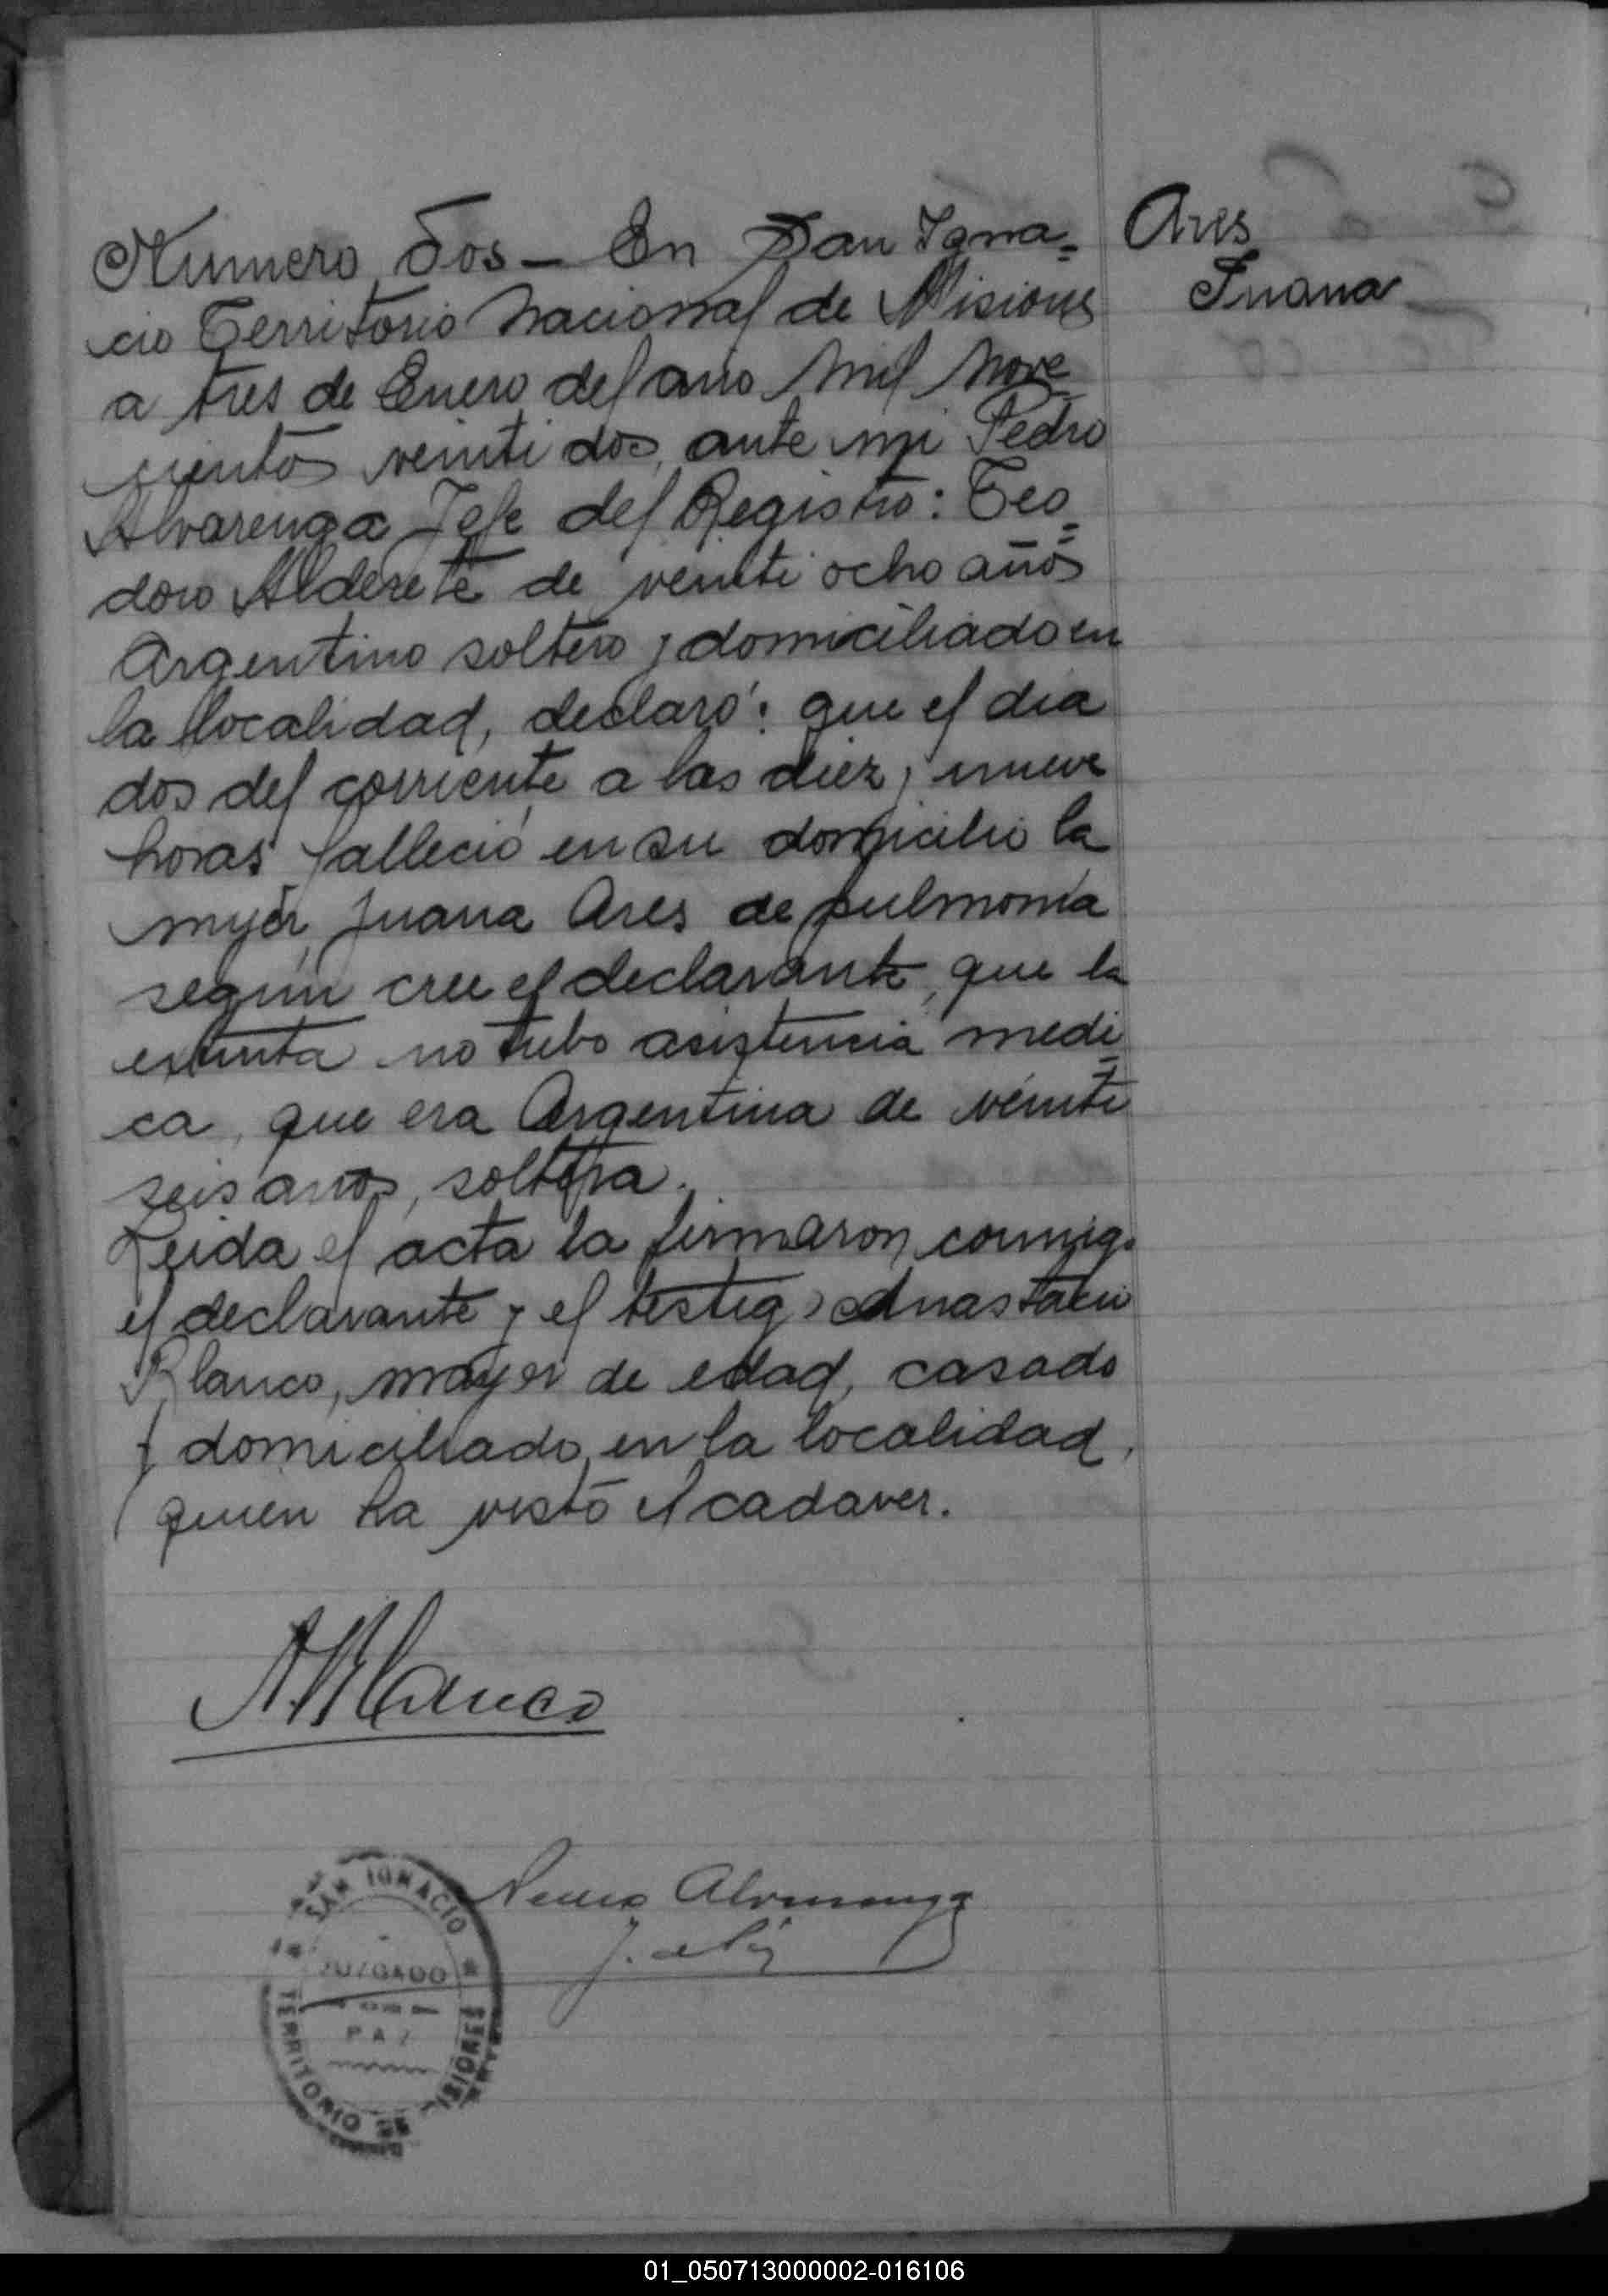 Numero dos — En San Igna=
cio Territorio Nacional de Misiones
a tres de Enero del año Mil Nove=
cientos veinti dos, ante mi Pedro
Alvarenga Jefe del Registro: Teo=
doro Alderete de veinti ocho años
Argentino soltero y domiciliado en
la localidad, declaró: que el dia
dos del corriente a las diez y nueve
horas falleció en su domicilio la
mujer Juana Ares de pulmonía
según cree el declarante, que la
extinta no tubo asistencia medi=
ca, que era Argentina de veinti
seis años, soltera.
Leida el acta la firmaron conmigo
el declarante y el testigo Anastacio
Blanco, mayor de edad, casado
y domiciliado en la localidad,
quien ha visto el cadaver.
Ares
Juana
A. Blanco
Pedro Alvarenga
J. de Paz
SAN IGNACIO
JUZGADO
DE
PAZ
TERRITORIO DE MISIONES
01_050713000002-016106